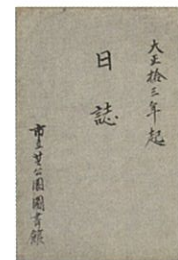 大正拾三年起
日誌
市立芝公園圖書館